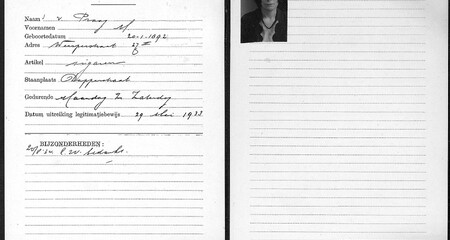 Naam: v. Praag
Voornamen M
Geboortedatum 20-1-1892
Adres Weesperstraat 27 II
Artikel sigaren
Staanplaats
Gedurende Maandag t/m Zaterdag
Datum uitreiking legitimatiebewijs 29 Mei 1933
BIJZONDERHEDEN: